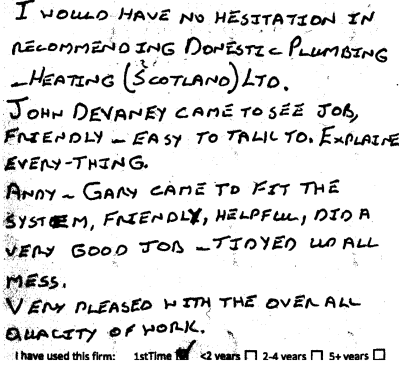 I WOULD HAVE NO HESITATION IN
RECOMMENDING DOMESTIC PLUMBING
~HEATING (SCOTLAND) LTD.
JOHN DEVANEY CAME TO SEE JOB,
FRIENDLY ~ EASY TO TALK TO. EXPLAINE
EVERY-THING.
ANDY ~ GARY CAME TO FIT THE
SYSTEM, FRIENDLY, HELPFUL, DID A
VERY GOOD JOB ~ TIDYED UP ALL
MESS.
VERY PLEASED WITH THE OVER ALL
QUALITY OF WORK.
I have used this firm: 1stTime ☑ <2 years ☐ 2-4 years ☐ 5+ years ☐